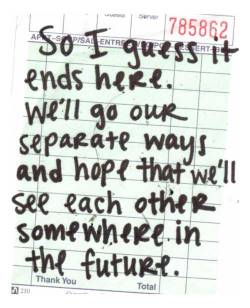 Server
785862
So I guess it
ends here.
We'll go our
separate ways
and hope that we'll
see each other
somewhere in
the future.
Thank You Total
210